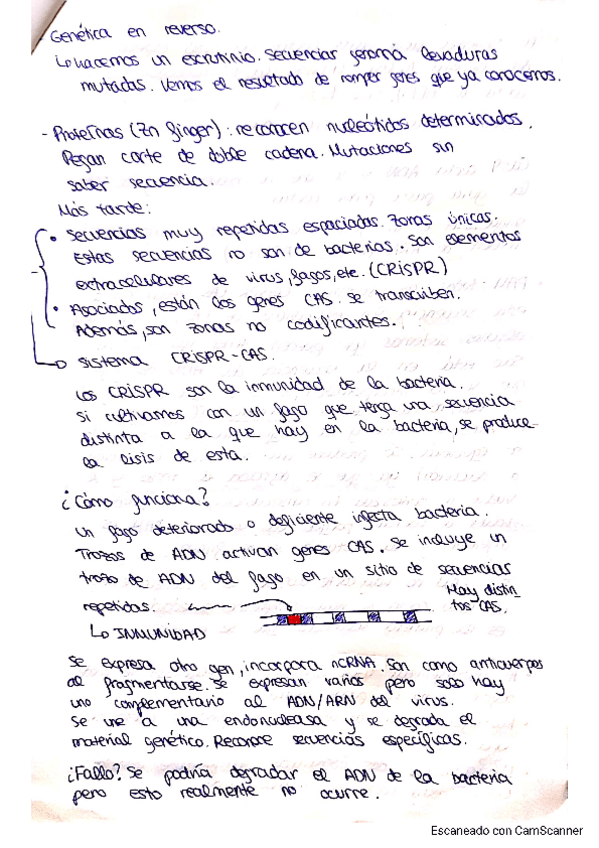 Genética en reverso.
↳ Hacemos un escrutinio. Secuenciar genoma levaduras
mutadas. Vemos el resultado de romper genes que ya conocemos.
- Proteínas (Zn finger): reconocen nucleótidos determinados.
Pegan corte de doble cadena. Mutaciones sin
saber secuencia.
Más tarde:
• Secuencias muy repetidas espaciadas. Zonas únicas.
Estas secuencias no son de bacterias. Son elementos
extracelulares de virus, fagos, etc. (CRISPR)
• Asociados, están los genes CAS. Se transcriben.
Además, son zonas no codificantes.
→ Sistema CRISPR-CAS.
Los CRISPR son la inmunidad de la bacteria.
Si cultivamos con un fago que tenga una secuencia
distinta a la que hay en la bacteria, se produce
la lisis de esta.
¿Cómo funciona?
Un fago deteriorado o deficiente infecta bacteria.
Trozos de ADN activan genes CAS. Se incluye un
trozo de ADN del fago en un sitio de secuencias
repetidas.
Hay distin-
tos CAS.
↳ INMUNIDAD
Se expresa otro gen, incorpora ncRNA. Son como anticuerpos
al fragmentarse. Se expresan varios pero solo hay
uno complementario al ADN/ARN del virus.
Se une a una endonucleasa y se degrada el
material genético. Reconoce secuencias específicas.
¿Fallo? Se podría degradar el ADN de la bacteria
pero esto realmente no ocurre.
Escaneado con CamScanner